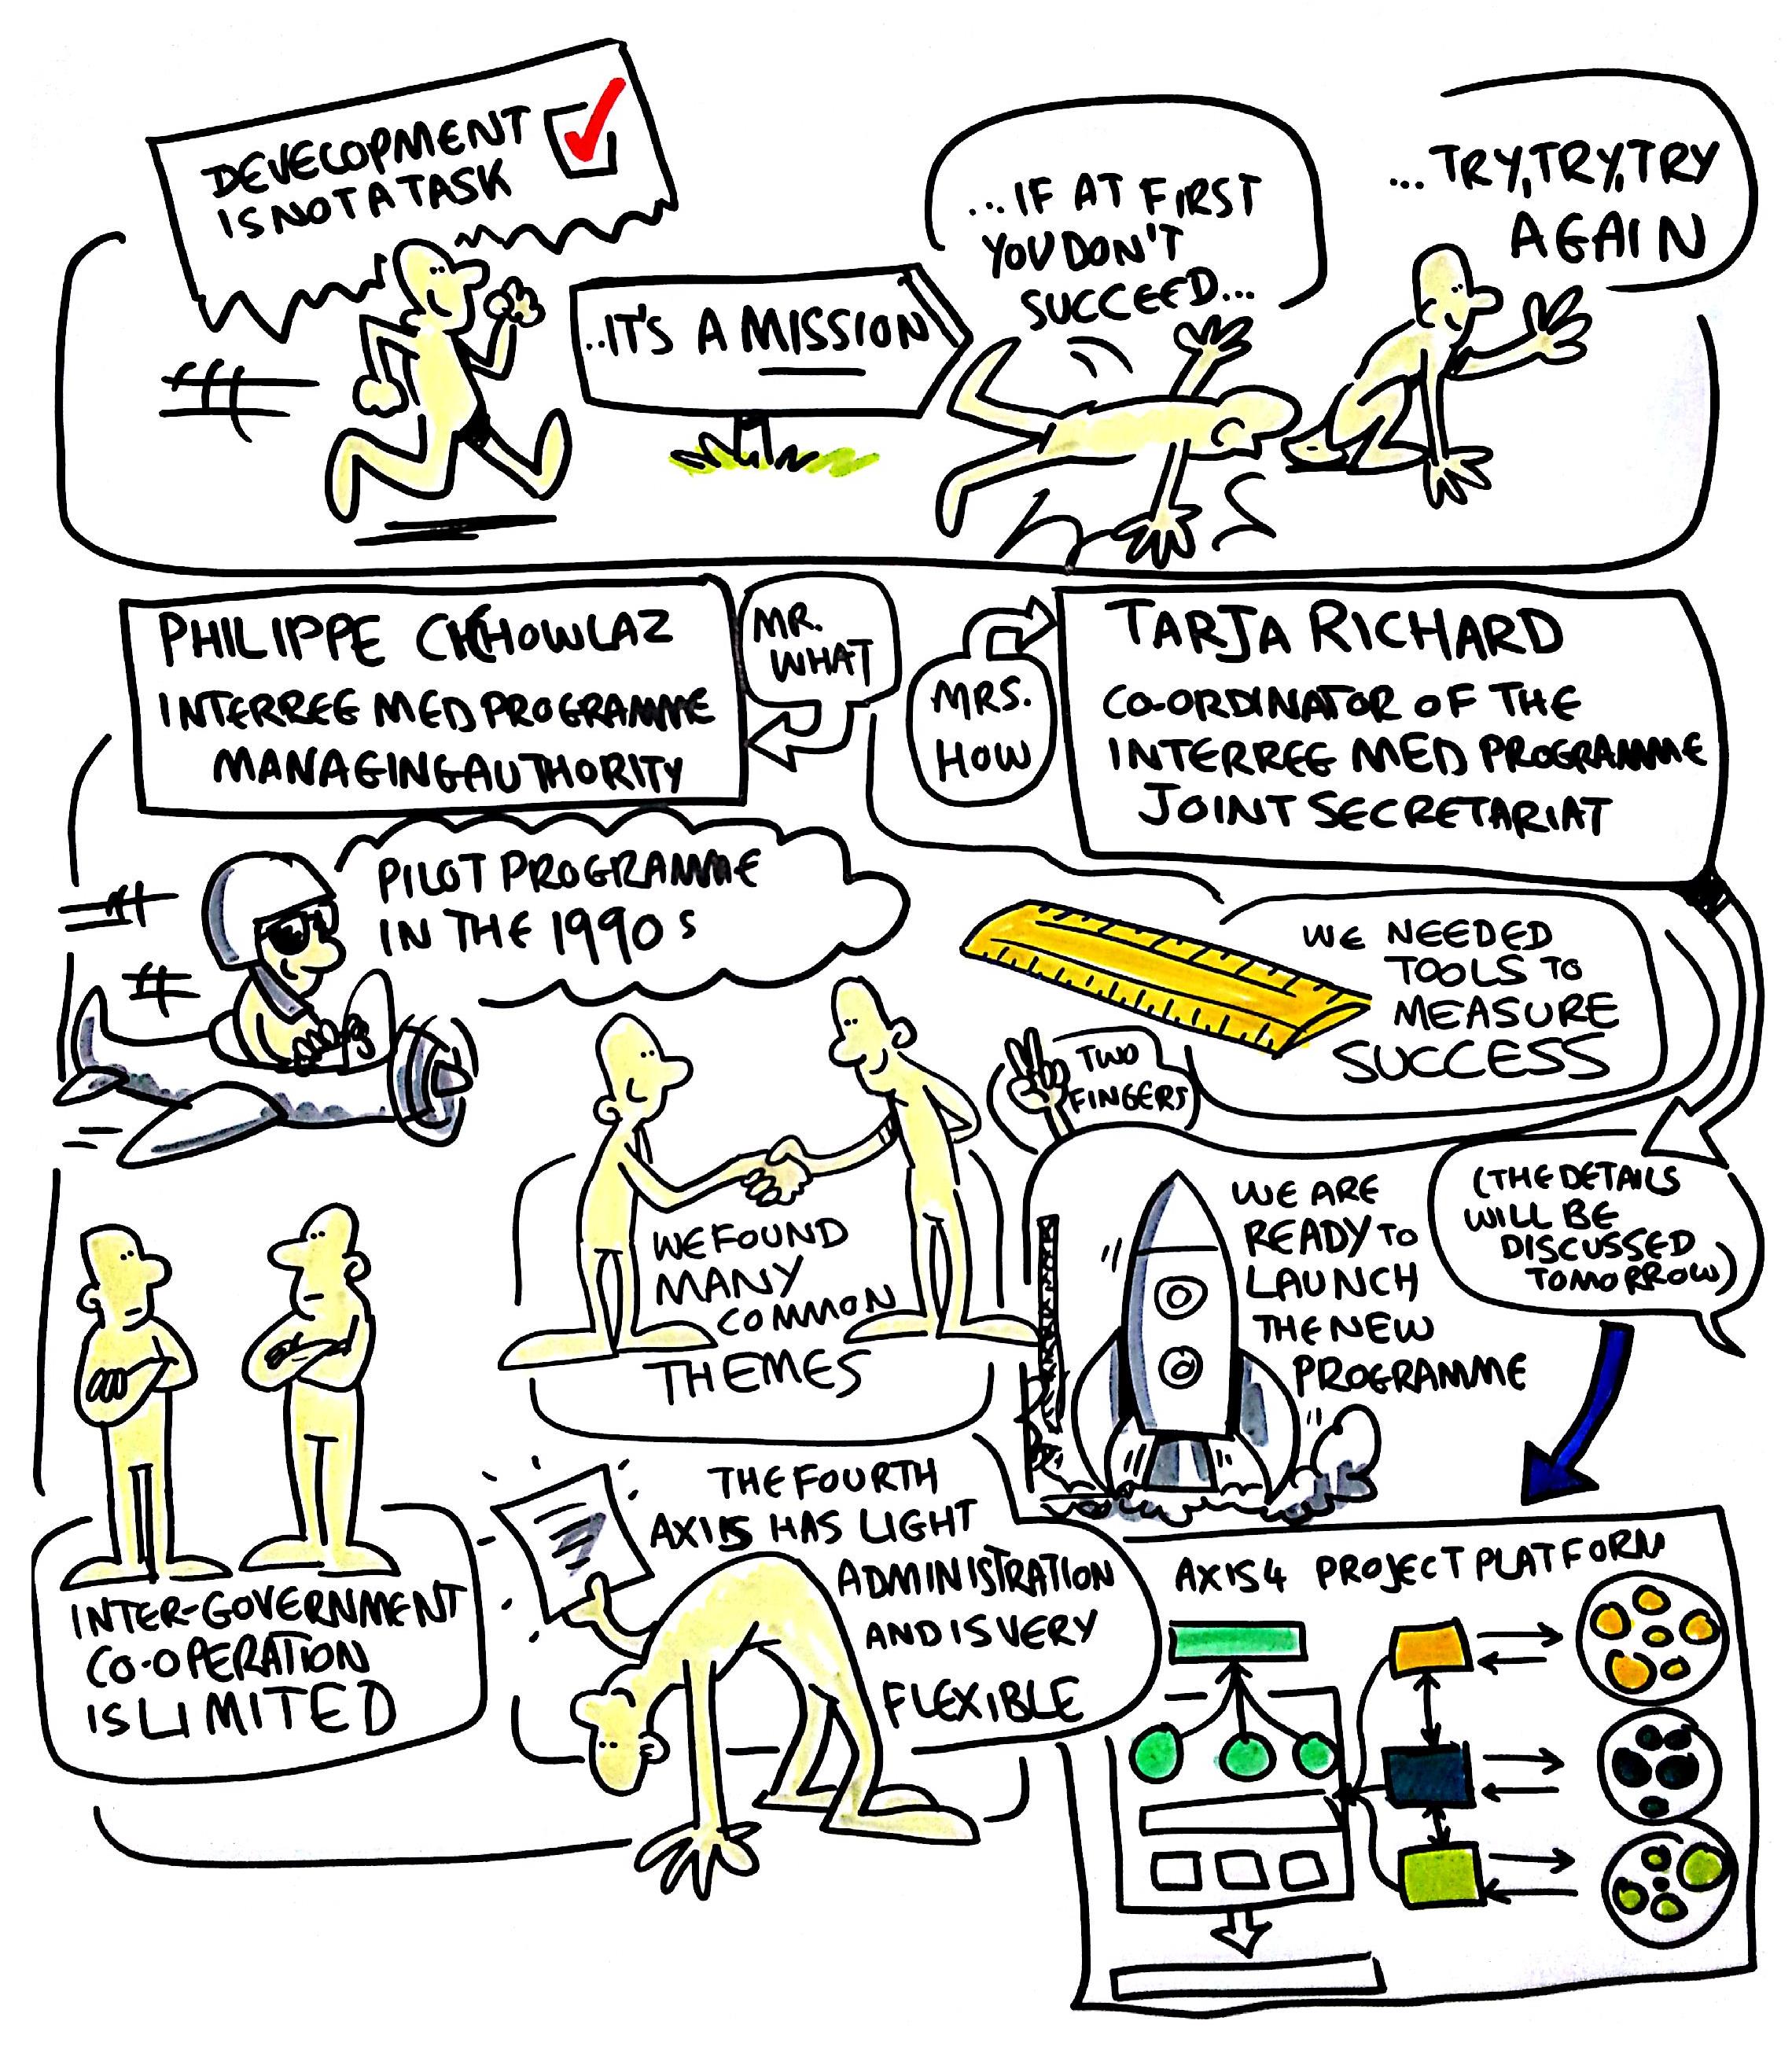 DEVELOPMENT
IS NOT A TASK
..IT'S A MISSION
...IF AT FIRST
YOU DON'T
SUCCEED...
...TRY, TRY, TRY
AGAIN
PHILIPPE CHHOWLAZ
INTERREG MED PROGRAMME
MANAGING AUTHORITY
MR.
WHAT
MRS.
HOW
TARJA RICHARD
CO-ORDINATOR OF THE
INTERREG MED PROGRAMME
JOINT SECRETARIAT
PILOT PROGRAMME
IN THE 1990s
WE NEEDED
TOOLS TO
MEASURE
SUCCESS
TWO
FINGERS
WE FOUND
MANY
COMMON
THEMES
WE ARE
READY TO
LAUNCH
THE NEW
PROGRAMME
(THE DETAILS
WILL BE
DISCUSSED
TOMORROW)
INTER-GOVERNMENT
CO-OPERATION
IS LIMITED
THE FOURTH
AXIS HAS LIGHT
ADMINISTRATION
AND IS VERY
FLEXIBLE
AXIS 4 PROJECT PLATFORM